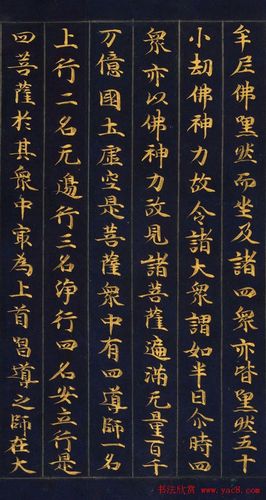 牟尼佛黑然而坐及諸四衆亦皆黑然五十
小劫佛神力故令諸大衆謂如半日尒時四
衆亦以佛神力故見諸菩薩遍滿无量百千
万億國土虛空是菩薩衆中有四導師一名
上行二名无邊行三名浄行四名安立行是
四菩薩於其衆中冣為上首唱導之師在大
书法欣赏
www.yac8.com